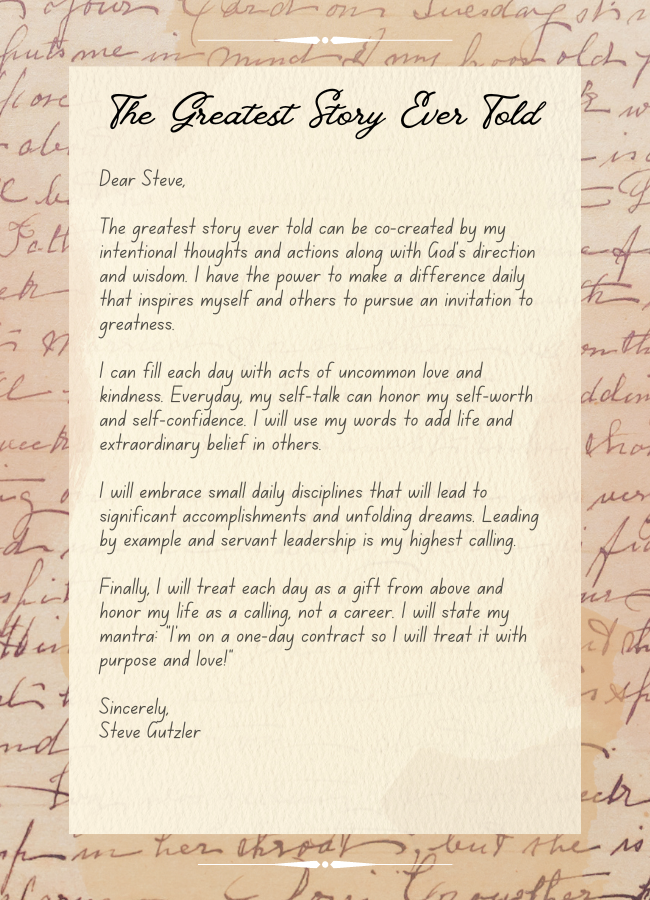 The Greatest Story Ever Told
Dear Steve,
The greatest story ever told can be co-created by my
intentional thoughts and actions along with God's direction
and wisdom. I have the power to make a difference daily
that inspires myself and others to pursue an invitation to
greatness.
I can fill each day with acts of uncommon love and
kindness. Everyday, my self-talk can honor my self-worth
and self-confidence. I will use my words to add life and
extraordinary belief in others.
I will embrace small daily disciplines that will lead to
significant accomplishments and unfolding dreams. Leading
by example and servant leadership is my highest calling.
Finally, I will treat each day as a gift from above and
honor my life as a calling, not a career. I will state my
mantra: "I'm on a one-day contract so I will treat it with
purpose and love!"
Sincerely,
Steve Gutzler